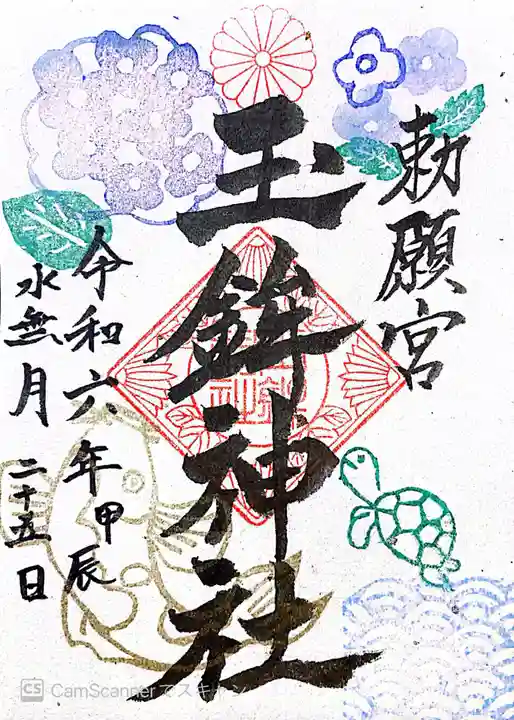 勅願宮
玉鉾神社
令和六年甲辰
水無月二十五日
CS CamScannerでスキャン